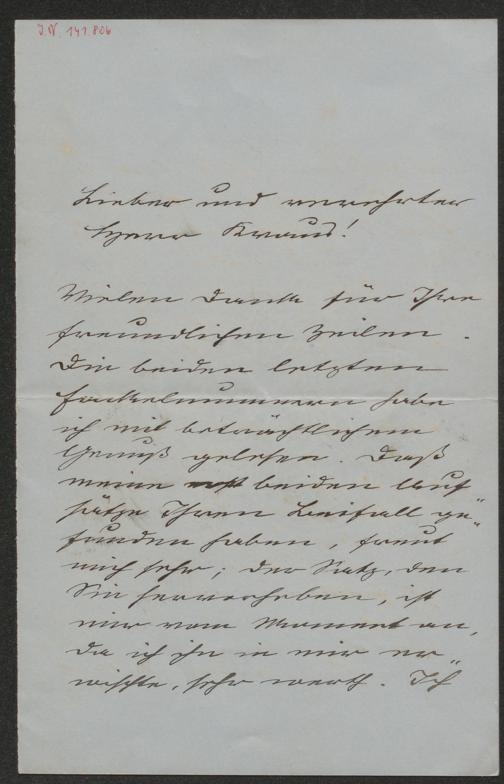 J.N. 141.806
Lieber und verehrter
Herr Kraus!
Vielen Dank für Ihre
freundlichen Zeilen.
Die beiden letzten
Fackelnummern habe
ich mit beträchtlichem
Genuß gelesen. Daß
meine beiden Auf-
sätze Ihren Beifall ge-
funden haben, freut
mich sehr; der Satz, den
Sie hervorheben, ist
mir vom Moment an,
da ich ihn in mir er-
wischte, sehr werth. Ich